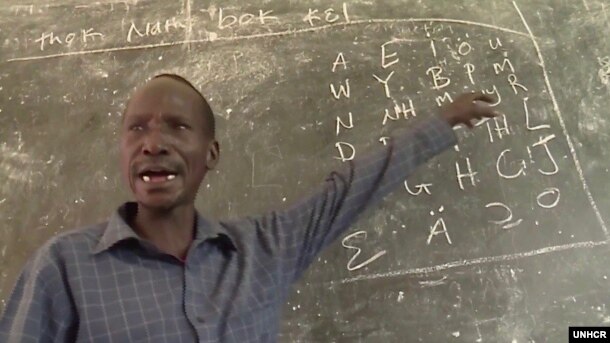 thok Nath bok kEl
A E ï ö u
W Y B P M
N NH M y R
D TH L
G H G J
Ɛ Ä Ɔ O
UNHCR